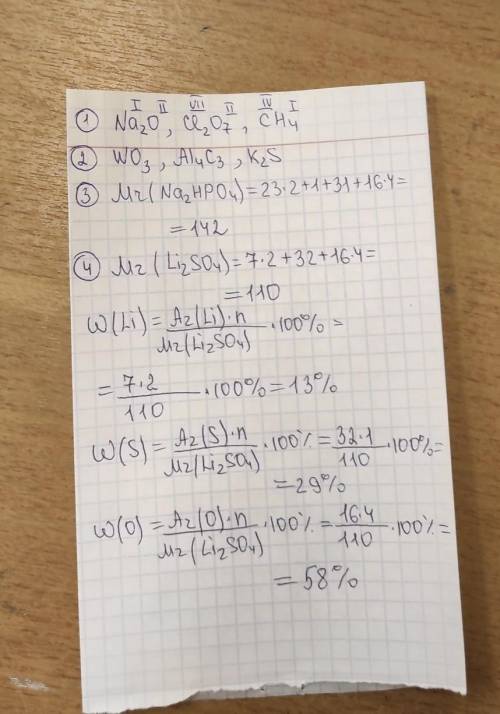 I II VII II IV I
① Na₂O, Cl₂O₇, CH₄
② WO₃, Al₄C₃, K₂S
③ Mr(Na₂HPO₄)=23·2+1+31+16·4=
=142
④ Mr(Li₂SO₄)=7·2+32+16·4=
=110
W(Li)=Ar(Li)·n/Mr(Li₂SO₄)·100%=
=7·2/110·100%=13%
W(S)=Ar(S)·n/Mr(Li₂SO₄)·100%=32·1/110·100%=
=29%
W(O)=Ar(O)·n/Mr(Li₂SO₄)·100%=16·4/110·100%=
=58%